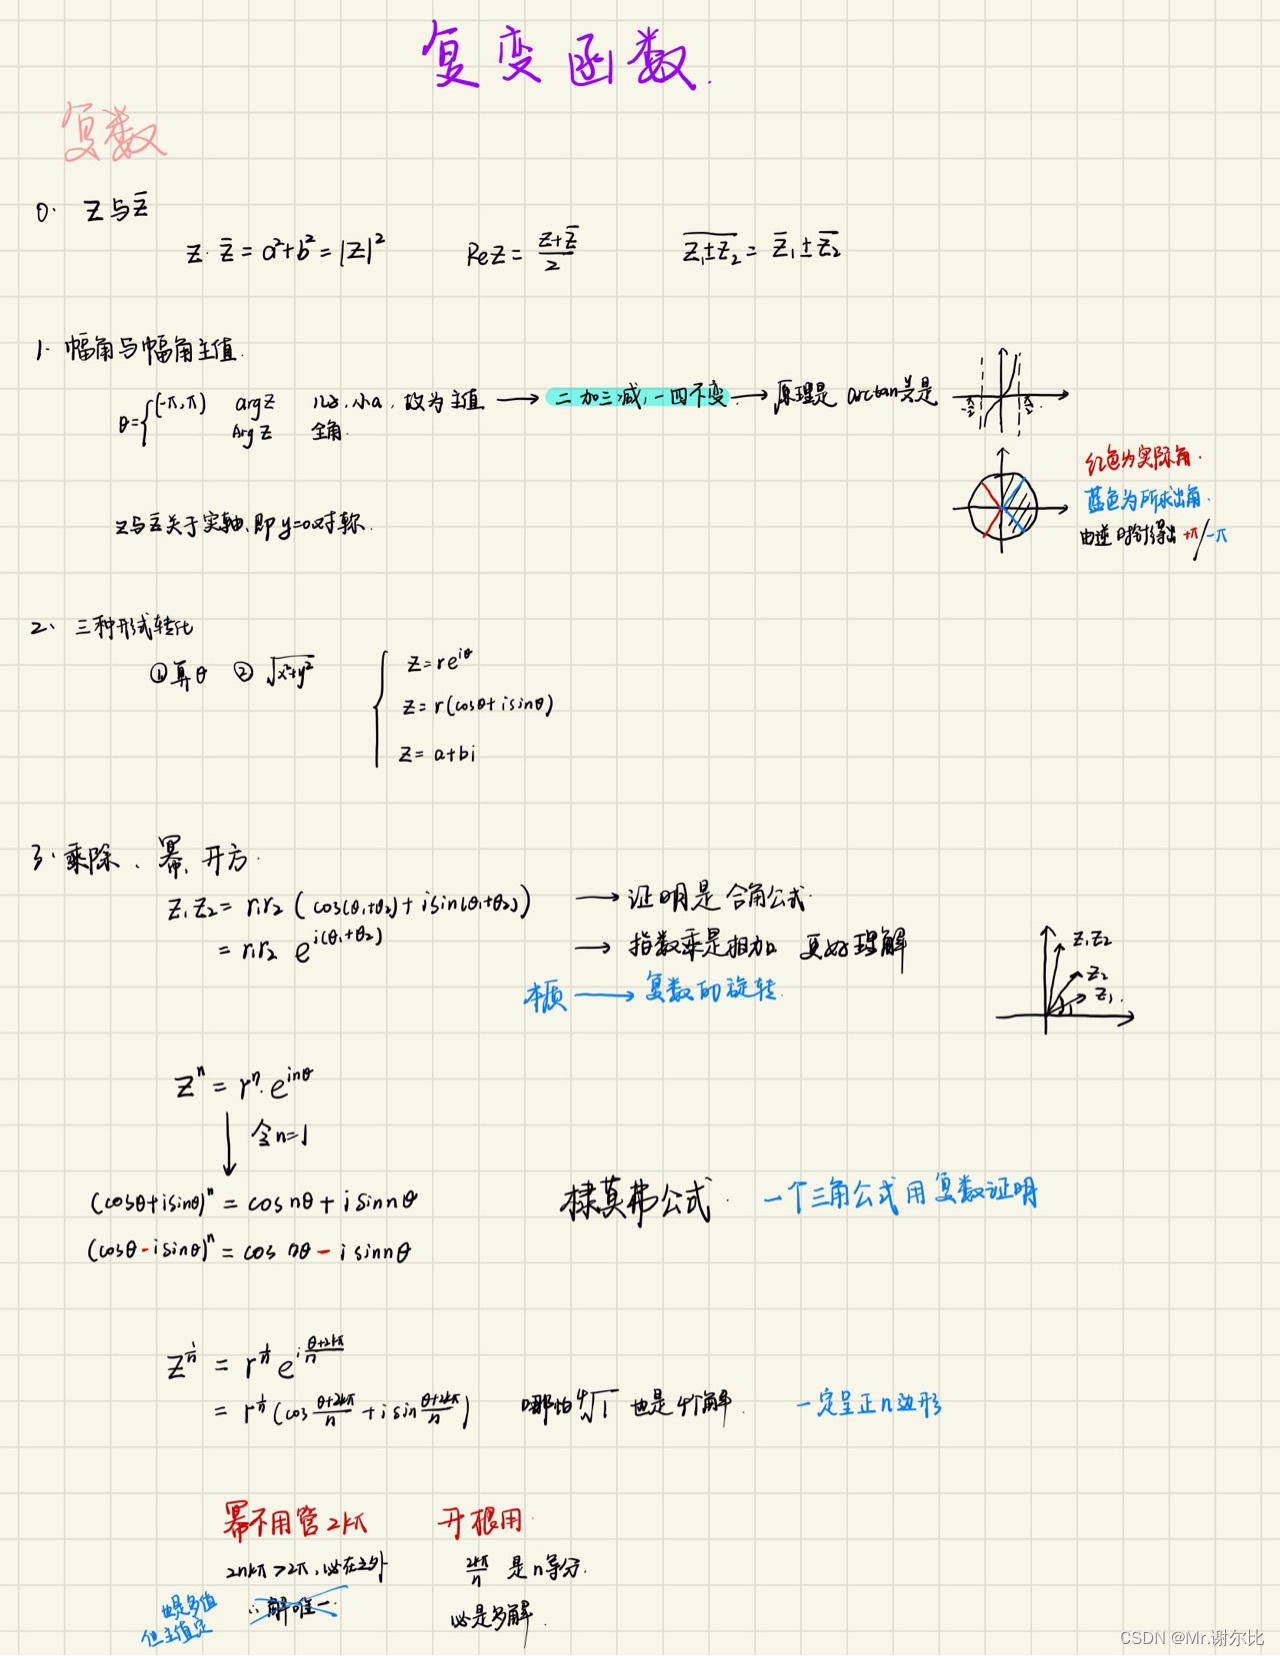 复变函数.
复数
0. z与z̄
z·z̄=a²+b²=|z|² Rez=(z+z̄)/2 \overline{z₁±z₂}=z̄₁±z̄₂
1. 幅角与幅角主值.
θ={(-π,π) argz 小a,故为主值 → 二加三减,一四不变 → 原理是 arctan
Argz 全角.
-π/2 π/2
红色为实际角.
蓝色为所求出角.
由逆时针得出 +π/-π
z与z̄关于实轴,即y=0对称.
2. 三种形式转化
①算θ ②√(x²+y²)
z=re^{iθ}
z=r(cosθ+isinθ)
z=a+bi
3. 乘除、幂,开方.
z₁z₂=r₁r₂(cos(θ₁+θ₂)+isin(θ₁+θ₂)) → 证明是合角公式.
=r₁r₂ e^{i(θ₁+θ₂)} → 指数乘是相加 更好理解
本质 → 复数的旋转.
z₁z₂
z₂
z₁.
zⁿ=rⁿ·e^{inθ}
令n=1
(cosθ+isinθ)ⁿ=cosnθ+isinnθ 棣莫弗公式. 一个三角公式用复数证明
(cosθ-isinθ)ⁿ=cosnθ-isinnθ
z^{1/n}=r^{1/n}e^{i(θ+2kπ)/n}
=r^{1/n}(cos(θ+2kπ)/n+isin(θ+2kπ)/n) 哪怕⁴√1 也是4个解. 一定呈正n边形
幂不用管2kπ 开根用.
2nkπ>2π,必在之外 2kπ/n 是n等分.
∴解唯一. 必是多解.
也是多值
但主值定
CSDN @Mr.谢尔比